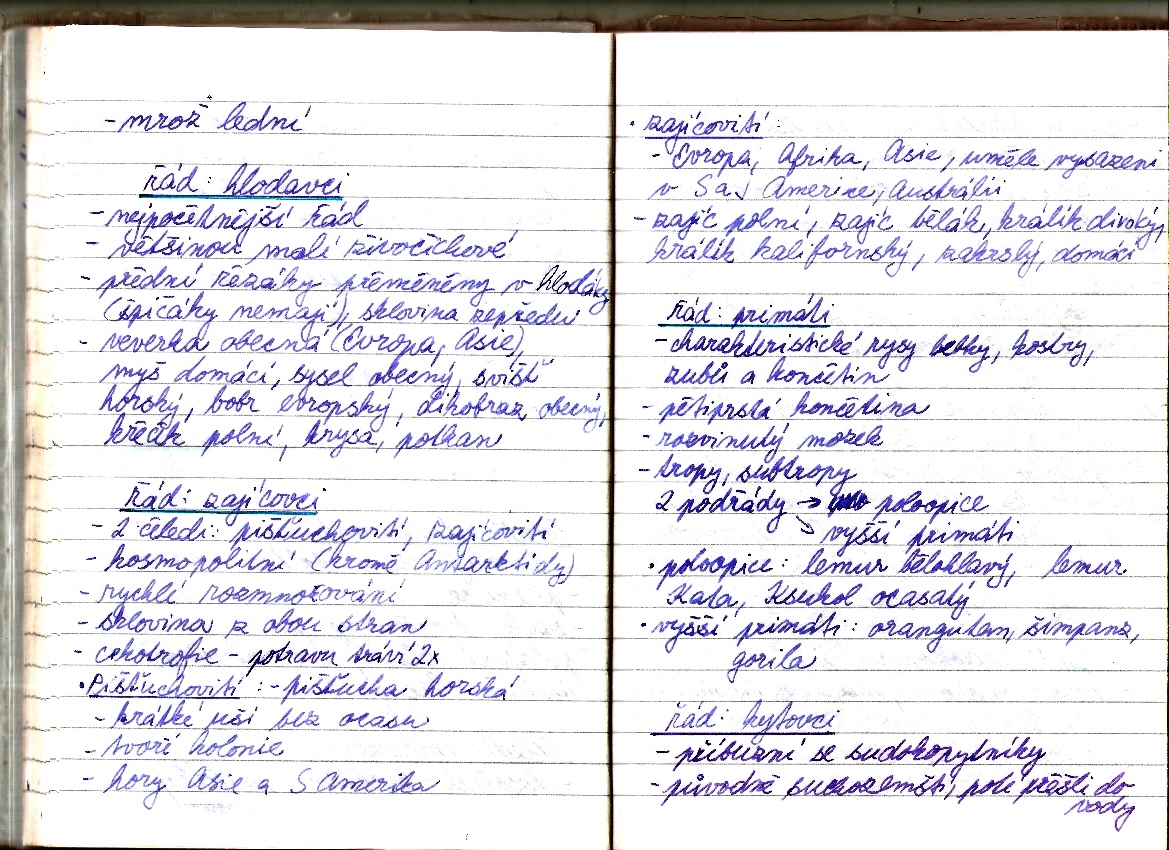 - mrož lední
řád: hlodavci
- nejpočetnější řád
- většinou malí živočichové
- přední řezáky přeměněny v hlodáky
(špičáky nemají), sklovina zepředu
- veverka obecná (Evropa, Asie),
myš domácí, sysel obecný, svišť
horský, bobr evropský, dikobraz obecný,
křeček polní, krysa, potkan
řád: zajícovci
- 2 čeledi: pišťuchovití, zajícovití
- kosmopolitní (kromě Antarktidy)
- rychlé rozmnožování
- sklovina z obou stran
- cekotrofie - potravu tráví 2x
• Pišťuchovití : - pišťucha horská
- krátké uši bez ocasu
- tvoří kolonie
- hory Asie a S Amerika
• zajícovití :
- Evropa, Afrika, Asie, uměle vysazeni
v S a J Americe, Austrálii
- zajíc polní, zajíc bělák, králík divoký,
králík kalifornský, zakrslý, domácí
řád: primáti
- charakteristické rysy lebky, kostry,
zubů a končetin
- pětiprstá končetina
- rozvinutý mozek
- tropy, subtropy
2 podřády → poloopice
↘ vyšší primáti
• poloopice: lemur bělohlavý, lemur
Kata, Ksukol ocasatý
• vyšší primáti: orangutan, šimpanz,
gorila
řád: kytovci
- příbuzní se sudokopytníky
- původně suchozemští, poté přešli do
vody